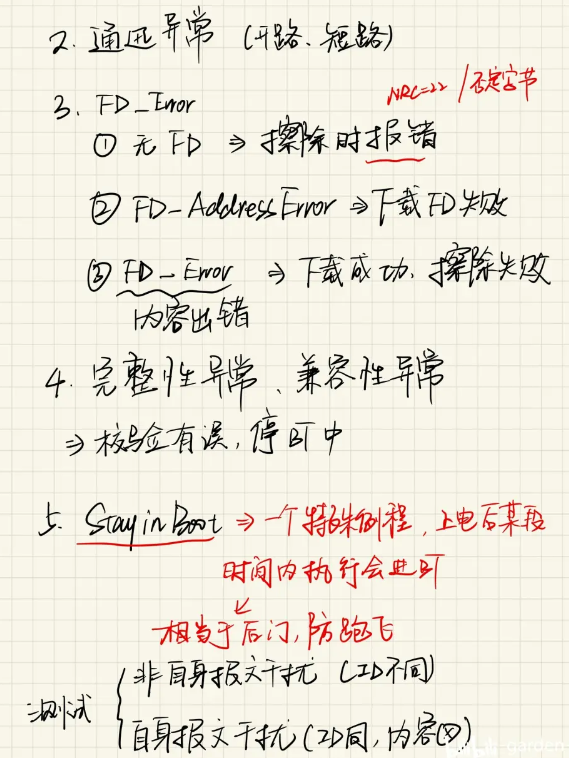 2. 通讯异常 (开路、短路)
NRC=22 / 否定字节
3. FD_Error
① 无 FD ⇒ 擦除时报错
② FD-AddressError ⇒ 下载FD失败
③ FD_Error ⇒ 下载成功, 擦除失败
内容出错
4. 完整性异常、兼容性异常
⇒ 校验有误, 停BT中
5. Stay in Boot ⇒ 一个特殊例程, 上电后某段
时间内执行会进BT
相当于后门, 防跑飞
测试
非自身报文干扰 (ID不同)
自身报文干扰 (ID同, 内容
garden